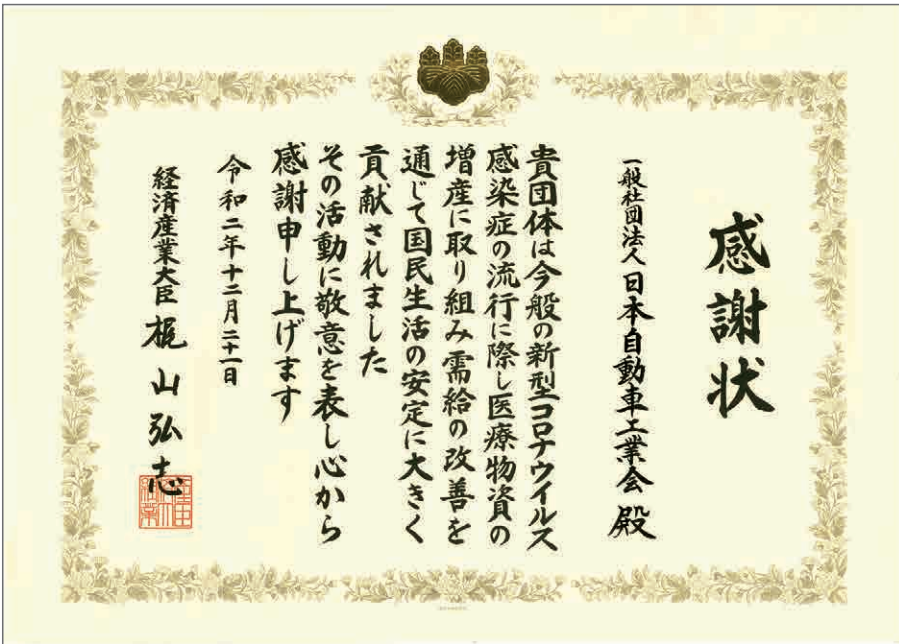 感謝状
一般社団法人 日本自動車工業会 殿
貴団体は今般の新型コロナウイルス
感染症の流行に際し医療物資の
増産に取り組み需給の改善を
通じて国民生活の安定に大きく
貢献されました
その活動に敬意を表し心から
感謝申し上げます
令和二年十二月二十一日
経済産業大臣 梶山弘志